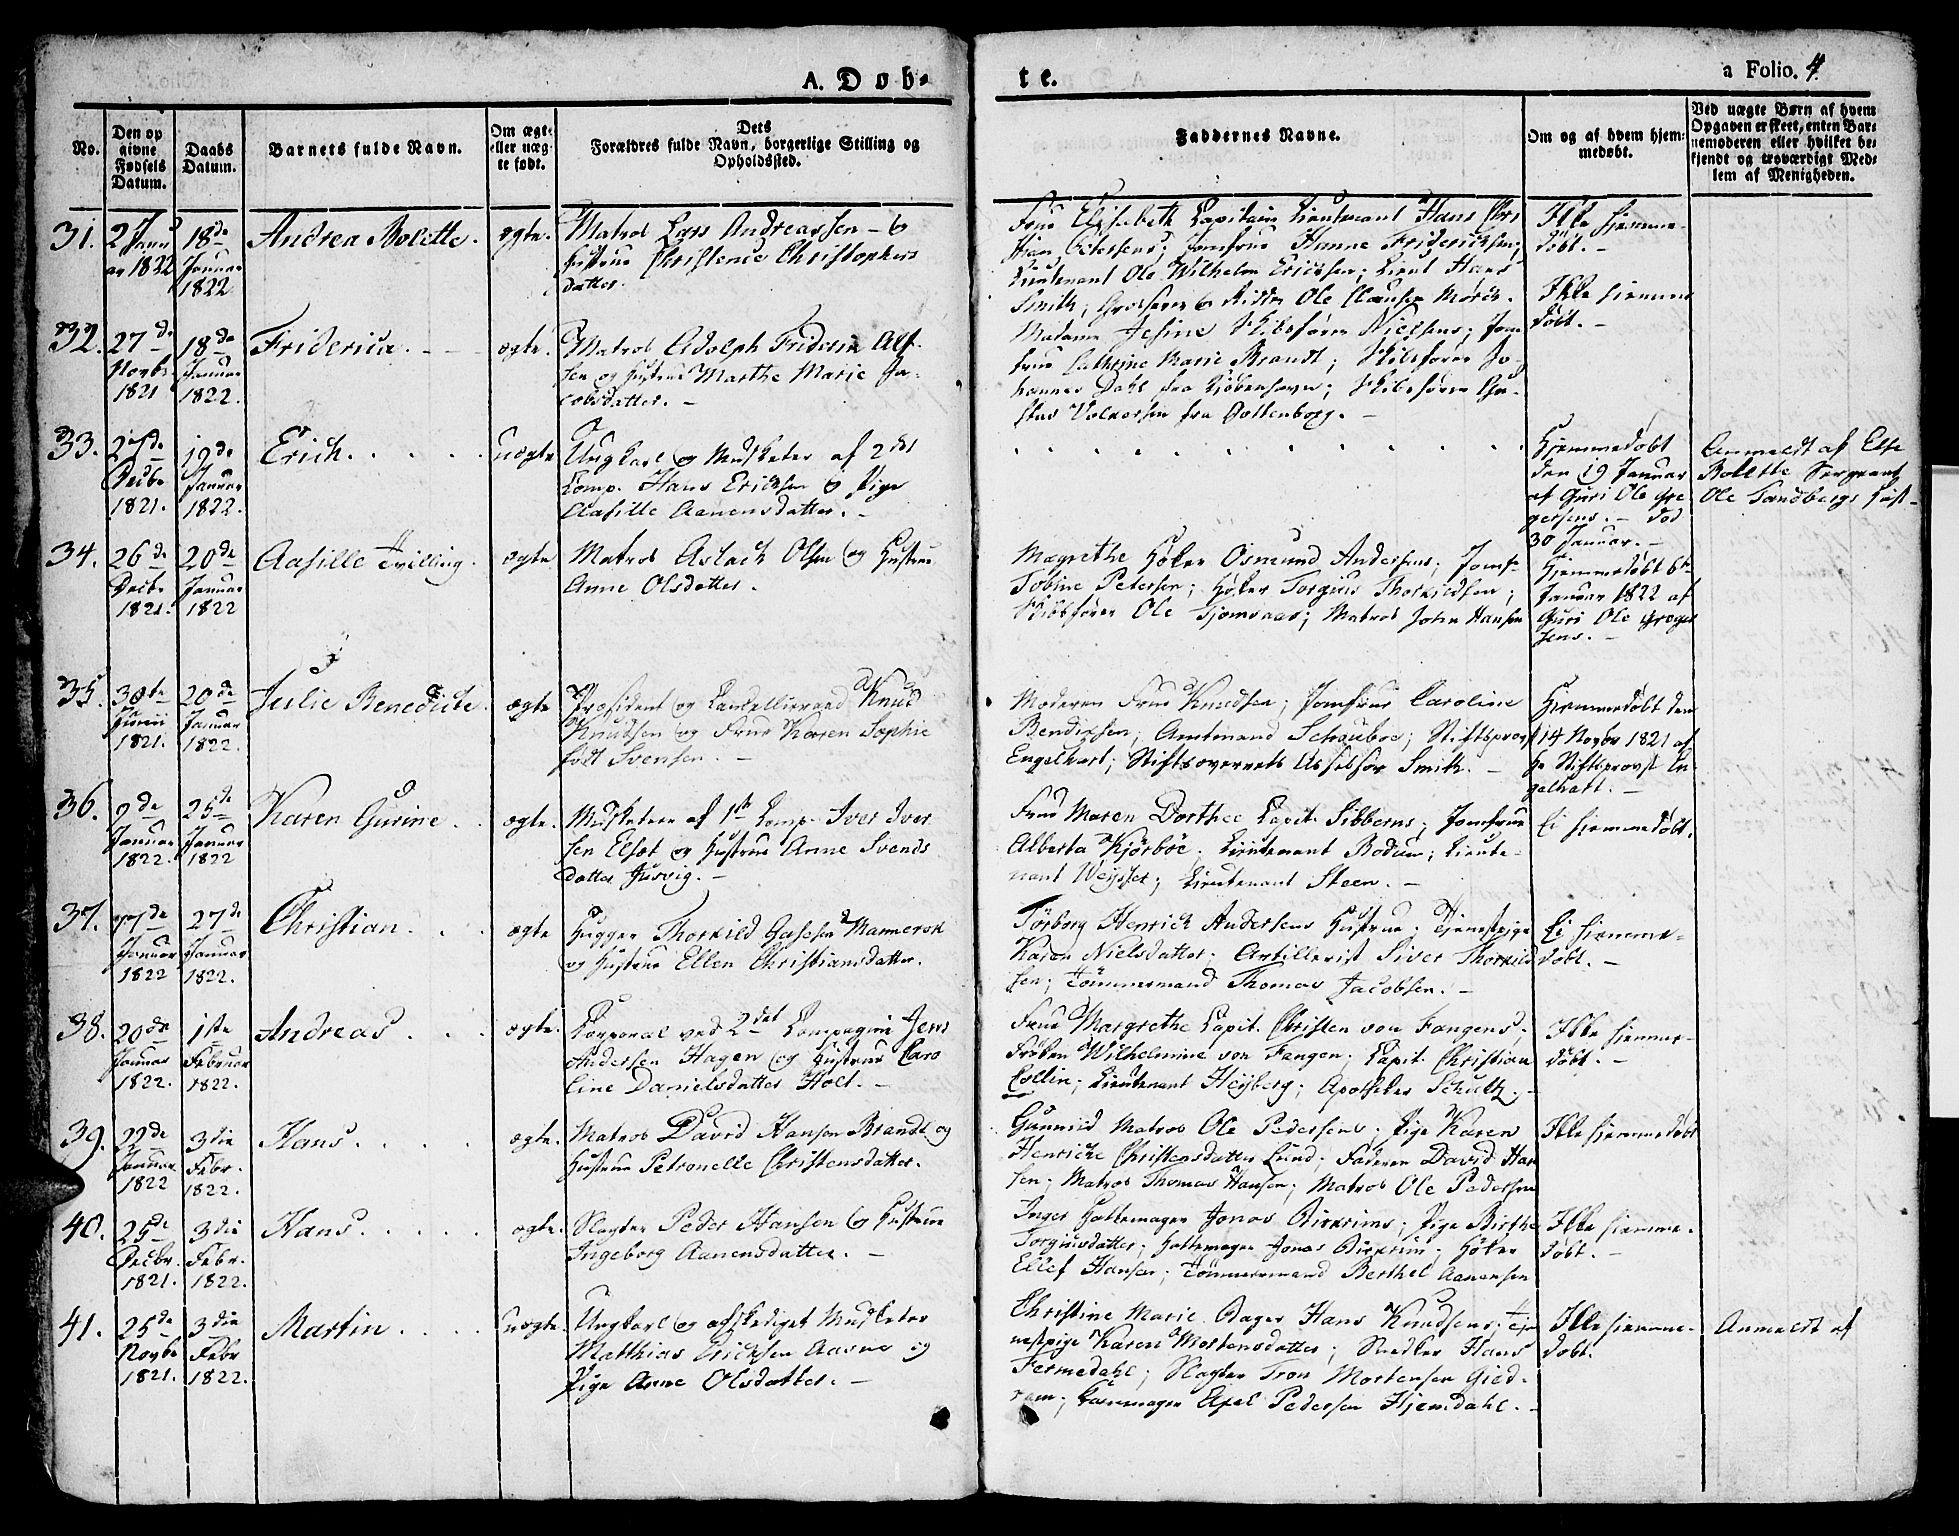 A. Døb-
te.
a Folio. 4.
No.
Den op
givne
Fødsels
Datum.
Daabs
Datum.
Barnets fulde Navn.
Om ægte
eller uæg-
te født.
Dets
Forældres fulde Navn, borgerlige Stilling og
Opholdssted.
Faddernes Navne.
Om og af hvem hjem-
medøbt.
Ved uægte Børn af hvem
Opgaven er skeet, enten Bar-
nemoderen eller hvilket be-
kjendt og troværdigt Med-
lem af Menigheden.
31.
2 Janu
ar 1822
18de
Januar
1822
Andrea Bolette.
ægte.
Matros Lars Andreassen og
Hustrue Christence Christophers
datter.
Frue Elisabeth Capitain Lieutenant Hans Chri
stian Petersens; Jomfrue Hanne Friderichsen;
Lieutenant Ole Wilhelm Erichsen; Lieut Hans
Smith; Grosserer og Ridder Ole Clausen Mørch.
Ikke hjemme-
døbt. -
32.
27de
Novbr
1821
18de
Januar
1822.
Friderica. - -
ægte.
Matros Adolph Friderich Alf-
sen og Hustrue Marthe Marie Ja-
cobsdatter. -
Madame Jesine Skibsfører Nielsens; Jom
frue Cathrine Marie Brandt; Skibsfører Jo-
hannes Dahl fra Kjøbenhavn; Skibsfører Gu-
stav Volkersen fra Gottenborg. -
Ikke hjemme
døbt. -
33.
27de
Decbr
1821.
19de
Januar
1822.
Erich. . . . .
uægte
Ungkarl og Musketer af 2det
Comp. Hans Erichsen og Pige
Aasille Aanensdatter. -
Hjemmedøbt
den 19 Januar
af Guri Ole Gre
gersens. - død
30 Januar. -
Anmeldt af Else
Bolette Sergeant
Ole Sandbergs Hust-
34.
26de
Decbr
1821.
20de
Januar
1822
Aasille Tvilling.
ægte
Matros Aslach Olsen og Hustrue
Anne Olsdatter.
Magrethe Høker Osmund Andersens; Jomfr
Tobine Petersen; Høker Torgius Thorkildsen;
Skibsfører Ole Tjomsaas; Matros John Hansen
Hjemmedøbt 6te
Januar 1822 af
Guri Ole Greger
sens. -
35.
30te
Junii
1821.
20de
Januar
1822.
Julie Benedicte.
ægte
Præsident og Cancelliraad Knud
Knudsen og Frue Karen Sophie
født Svensen. -
Moderen Frue Knudsen; Jomfrue Caroline
Bendixsen; Amtmand Schouboe; Stiftsprovst
Engelhart; Stiftsoverrets Assessor Smith. -
Hjemmedøbt den
14 Novbr 1821 af
Hr Stiftsprovst En-
gelhart. -
36.
2de
Januar
1822.
25de
Januar
1822
Karen Gurine.
ægte.
Musketeer af 1ste Comp. Iver Iver
sen Elset og Hustrue Anne Svends
datter Husvig. -
Frue Maren Dorthee Capit. Sibberns; Jomfrue
Alberta Kjørboe; Lieutenant Rodum; Lieute-
nant Weysser; Lieutenant Steen. -
Ei hjemmedøbt.
37.
17de
Januar
1822
27de
Januar
1822.
Christian. . .
ægte
Hugger Thorkild Gasesen Mannerok
og Hustrue Ellen Christiansdatter.
Tørborg Henrich Andersens Hustrue; Tjenestpige
Karen Nielsdatter; Artillerist Siver Thorkild
sen; Tømmermand Thomas Jacobsen. -
Ei hjemme-
døbt. -
38.
20de
Januar
1822.
1ste
Februar
1822.
Andreas . . .
ægte.
Corporal ved 2det Compagnie Jens
Andersen Hagen og Hustrue Caro
line Danielsdatter Holt. -
Frue Margrethe Capit. Christen von Fangens;
Frøken Wilhelmine von Fangen; Capit. Christian
Collin; Lieutenant Heyberg; Apotheker Schultz. -
Ikke hjemme-
døbt. -
39.
22de
Januar
1822
3die
Febr.
1822.
Hans. . . . .
ægte.
Matros David Hansen Brandt og
Hustrue Petronelle Christensdatter.
Gunnild Matros Ole Pedersens; Pige Karen
Henriche Christensdatter Lund; Faderen David Han
sen; Matros Thomas Hansen; Matros Ole Pedersen
Ikke hjemmedøbt
40.
25de
Decbr.
1821.
3die
Febr.
1822.
Hans. . . . .
ægte.
Slagter Peder Hansen og Hustrue
Ingeborg Aanensdatter. -
Inger Hattemager Jonas Birkrims; Pige Birthe
Torgiusdatter; Hattemager Jonas Birkrim; Høker
Ellef Hansen; Tømmermand Berthel Aanensen
Ikke hjemme-
døbt. -
41.
25de
Novbr
1821.
3die
Febr
1822.
Martin. . . .
uægte.
Ungkarl og afskediget Musketer
Matthias Erichsen Aasne og
Pige Anne Olsdatter. -
Christine Marie Bager Hans Knudsens; Tje
nestpige Karen Mortensdatter; Snedker Hans
Fermedahl; Slagter Tron Mortensen Gied-
ram; Garvemager Axel Pedersen Hjemdahl. -
Ikke hjemme-
døbt.
Anmeldt af